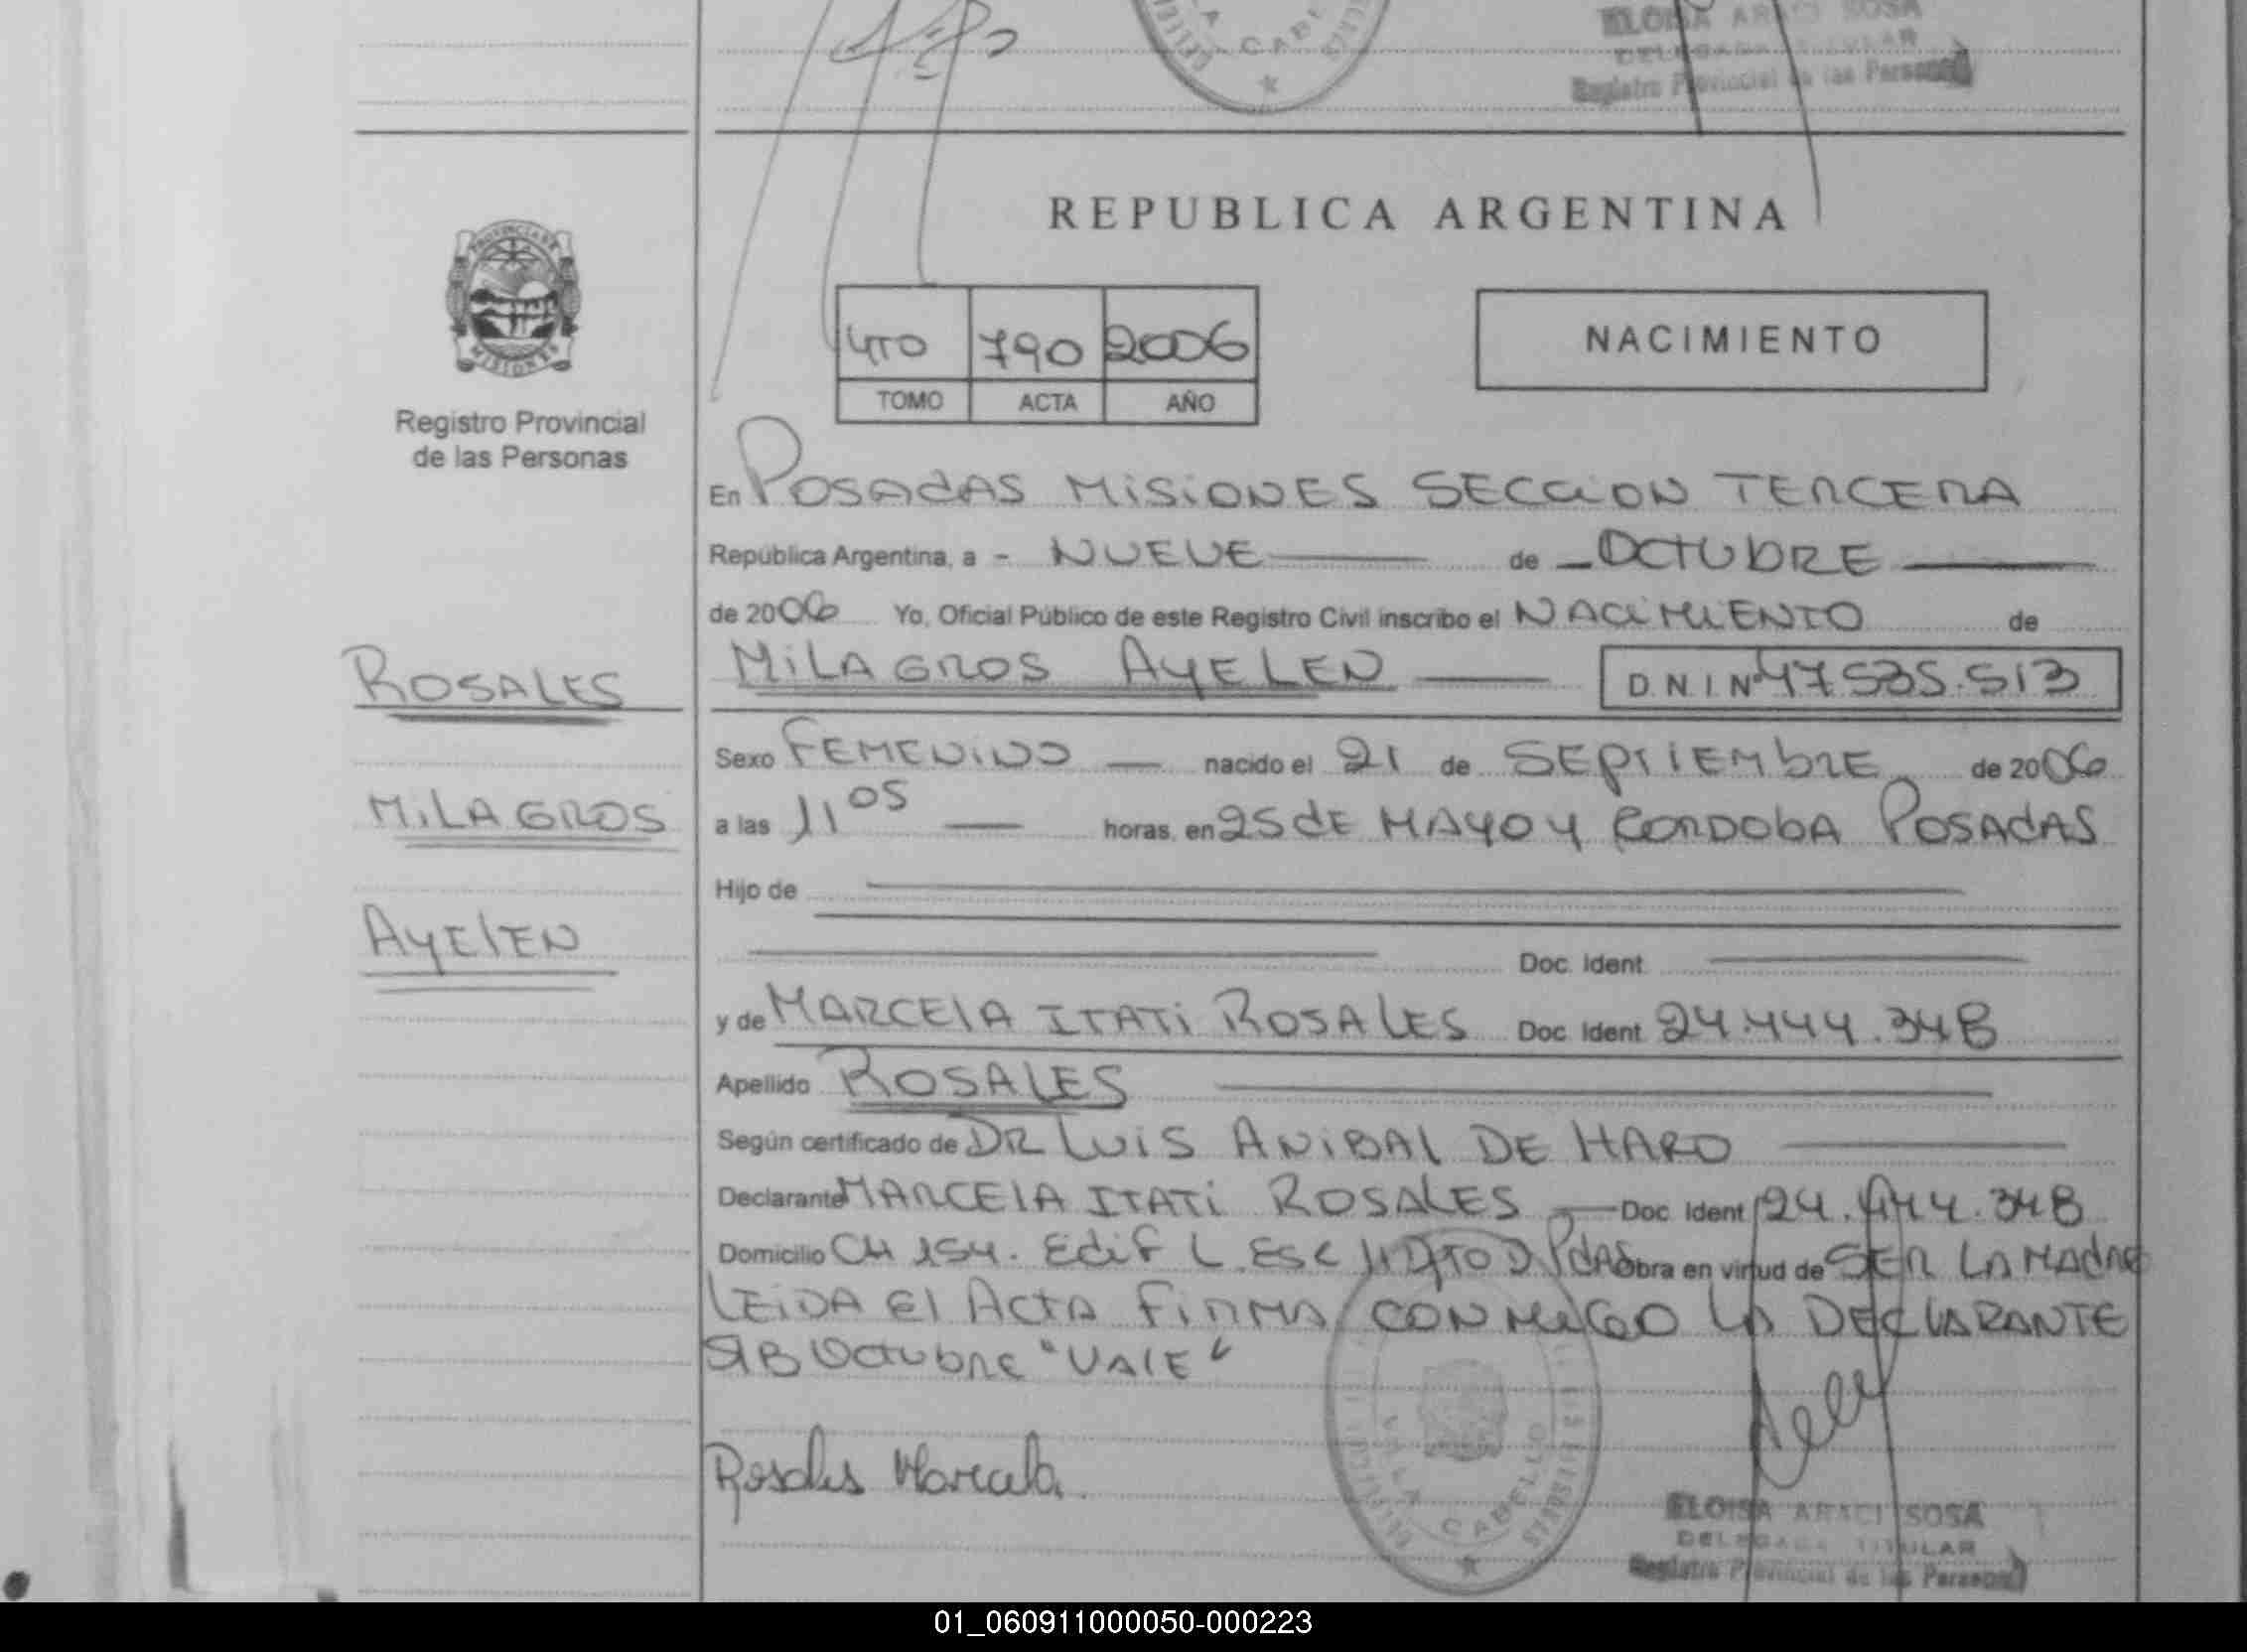 CABE
ELOISA ARACI SOSA
DELEGADA TITULAR
Registro Provincial de las Personas
PROVINCIA DE
MISIONES
Registro Provincial
de las Personas
REPUBLICA ARGENTINA
4TO 790 2006
TOMO ACTA AÑO
NACIMIENTO
En POSADAS MISIONES SECCION TERCERA
República Argentina, a - NUEVE de OCTUBRE
de 2006 Yo, Oficial Público de este Registro Civil inscribo el NACIMIENTO de
ROSALES
MILAGROS AYELEN D.N.I Nº 47.535.513
Sexo FEMENINO nacido el 21 de SEPTIEMBRE de 2006
MILAGROS
a las 11 05 horas, en 25 DE MAYO Y CORDOBA POSADAS
Hijo de
AYELEN
Doc. Ident.
y de MARCELA ITATI ROSALES Doc. Ident. 24.444.348
Apellido ROSALES
Según certificado de DR LUIS ANIBAL DE HARO
Declarante MARCELA ITATI ROSALES Doc. Ident. 24.444.348
Domicilio CH 154. Edif L Esc 11 DPTO D Pdas Obra en virtud de SER LA MADRE
LEIDA El ACTA FIRMA CONMIGO LA DECLARANTE
S/B Octubre "VALE"
Rosales Marcela
VILLA CABELLO
ELOISA ARACI SOSA
DELEGADA TITULAR
Registro Provincial de las Personas
01_060911000050-000223